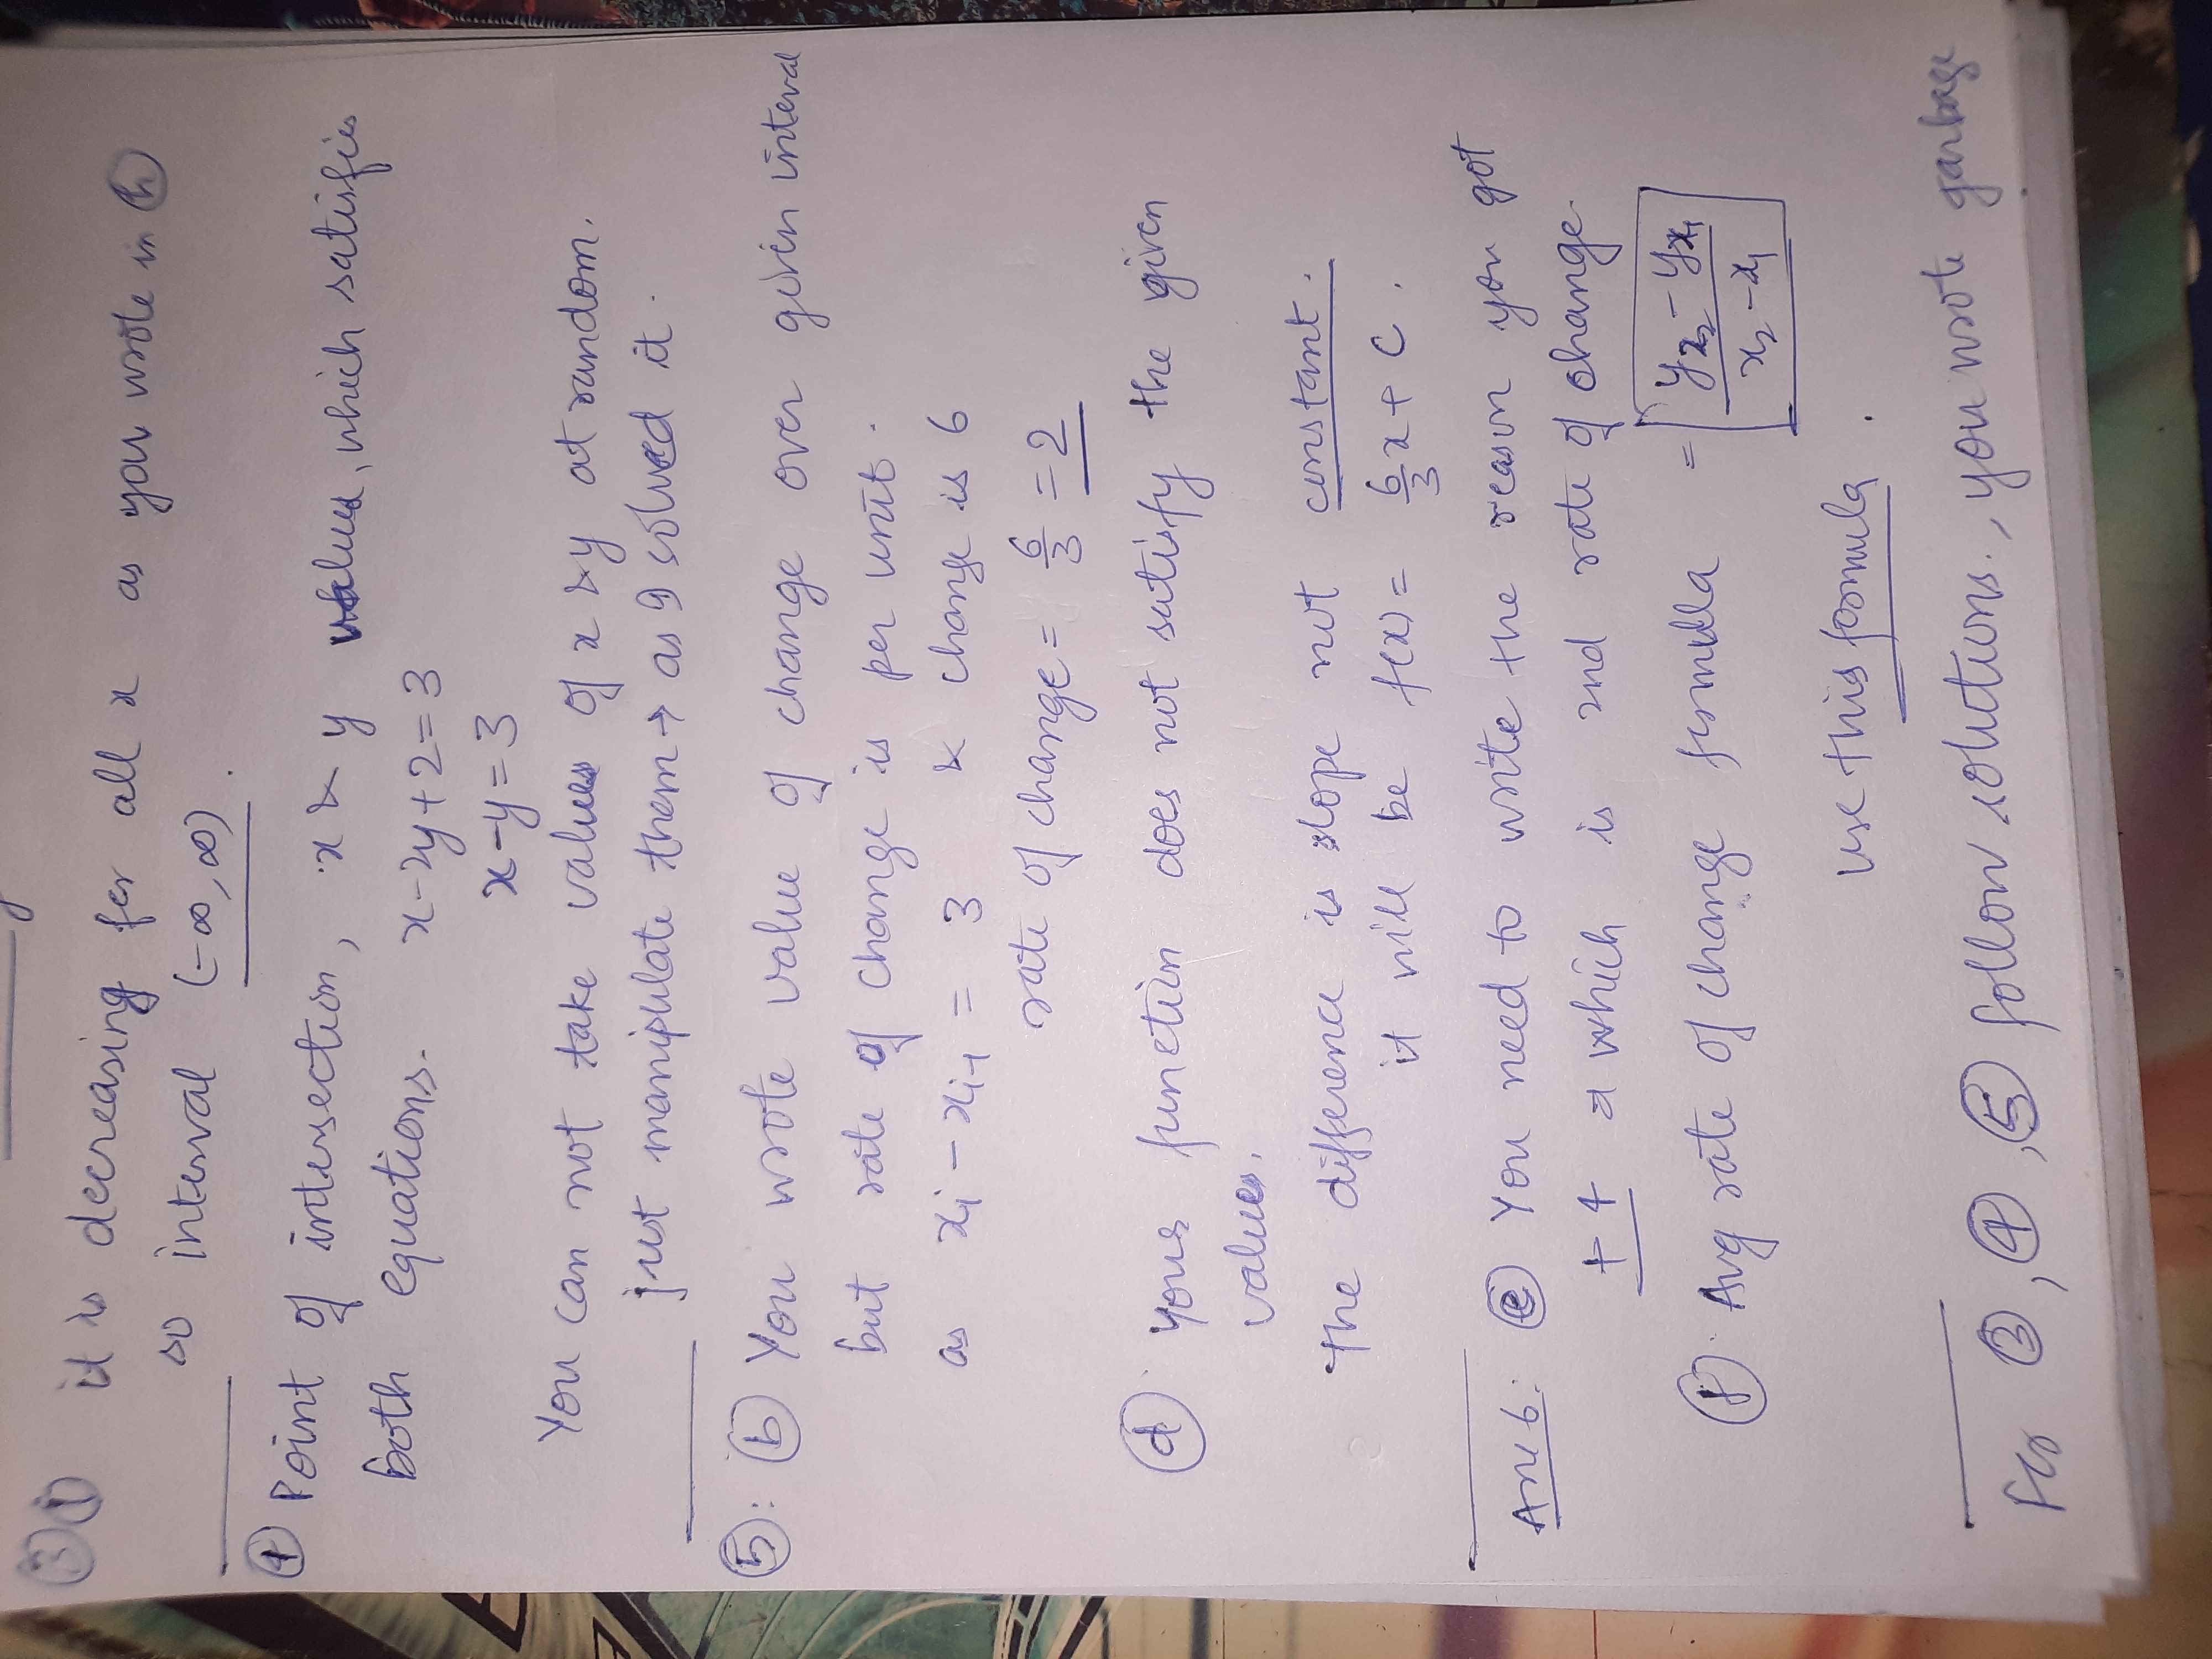 ③ ① it is decreasing for all x as you wrote in ⓗ
so interval (-∞, ∞).
④ Point of intersection, x & y values, which satisfies
both equations. x-2y+2=3
x-y=3
You can not take values of x & y at random.
just manipulate them → as I solved it.
⑤: ⓑ You wrote value of change over given interval
but rate of change is per unit.
as xᵢ - xᵢ₋₁ = 3 & change is 6
rate of change = 6/3 = 2
ⓓ your function does not satisfy the given
values.
The difference is slope not constant.
it will be f(x) = 6/3 x + C.
Ans 6: ⓔ You need to write the reason you got
+4 which is 2nd rate of change.
ⓕ. Avg rate of change formula = y x₂ - y x₁ / x₂ - x₁
use this formula.
For ③, ④, ⑤ follow solutions., you wrote garbage